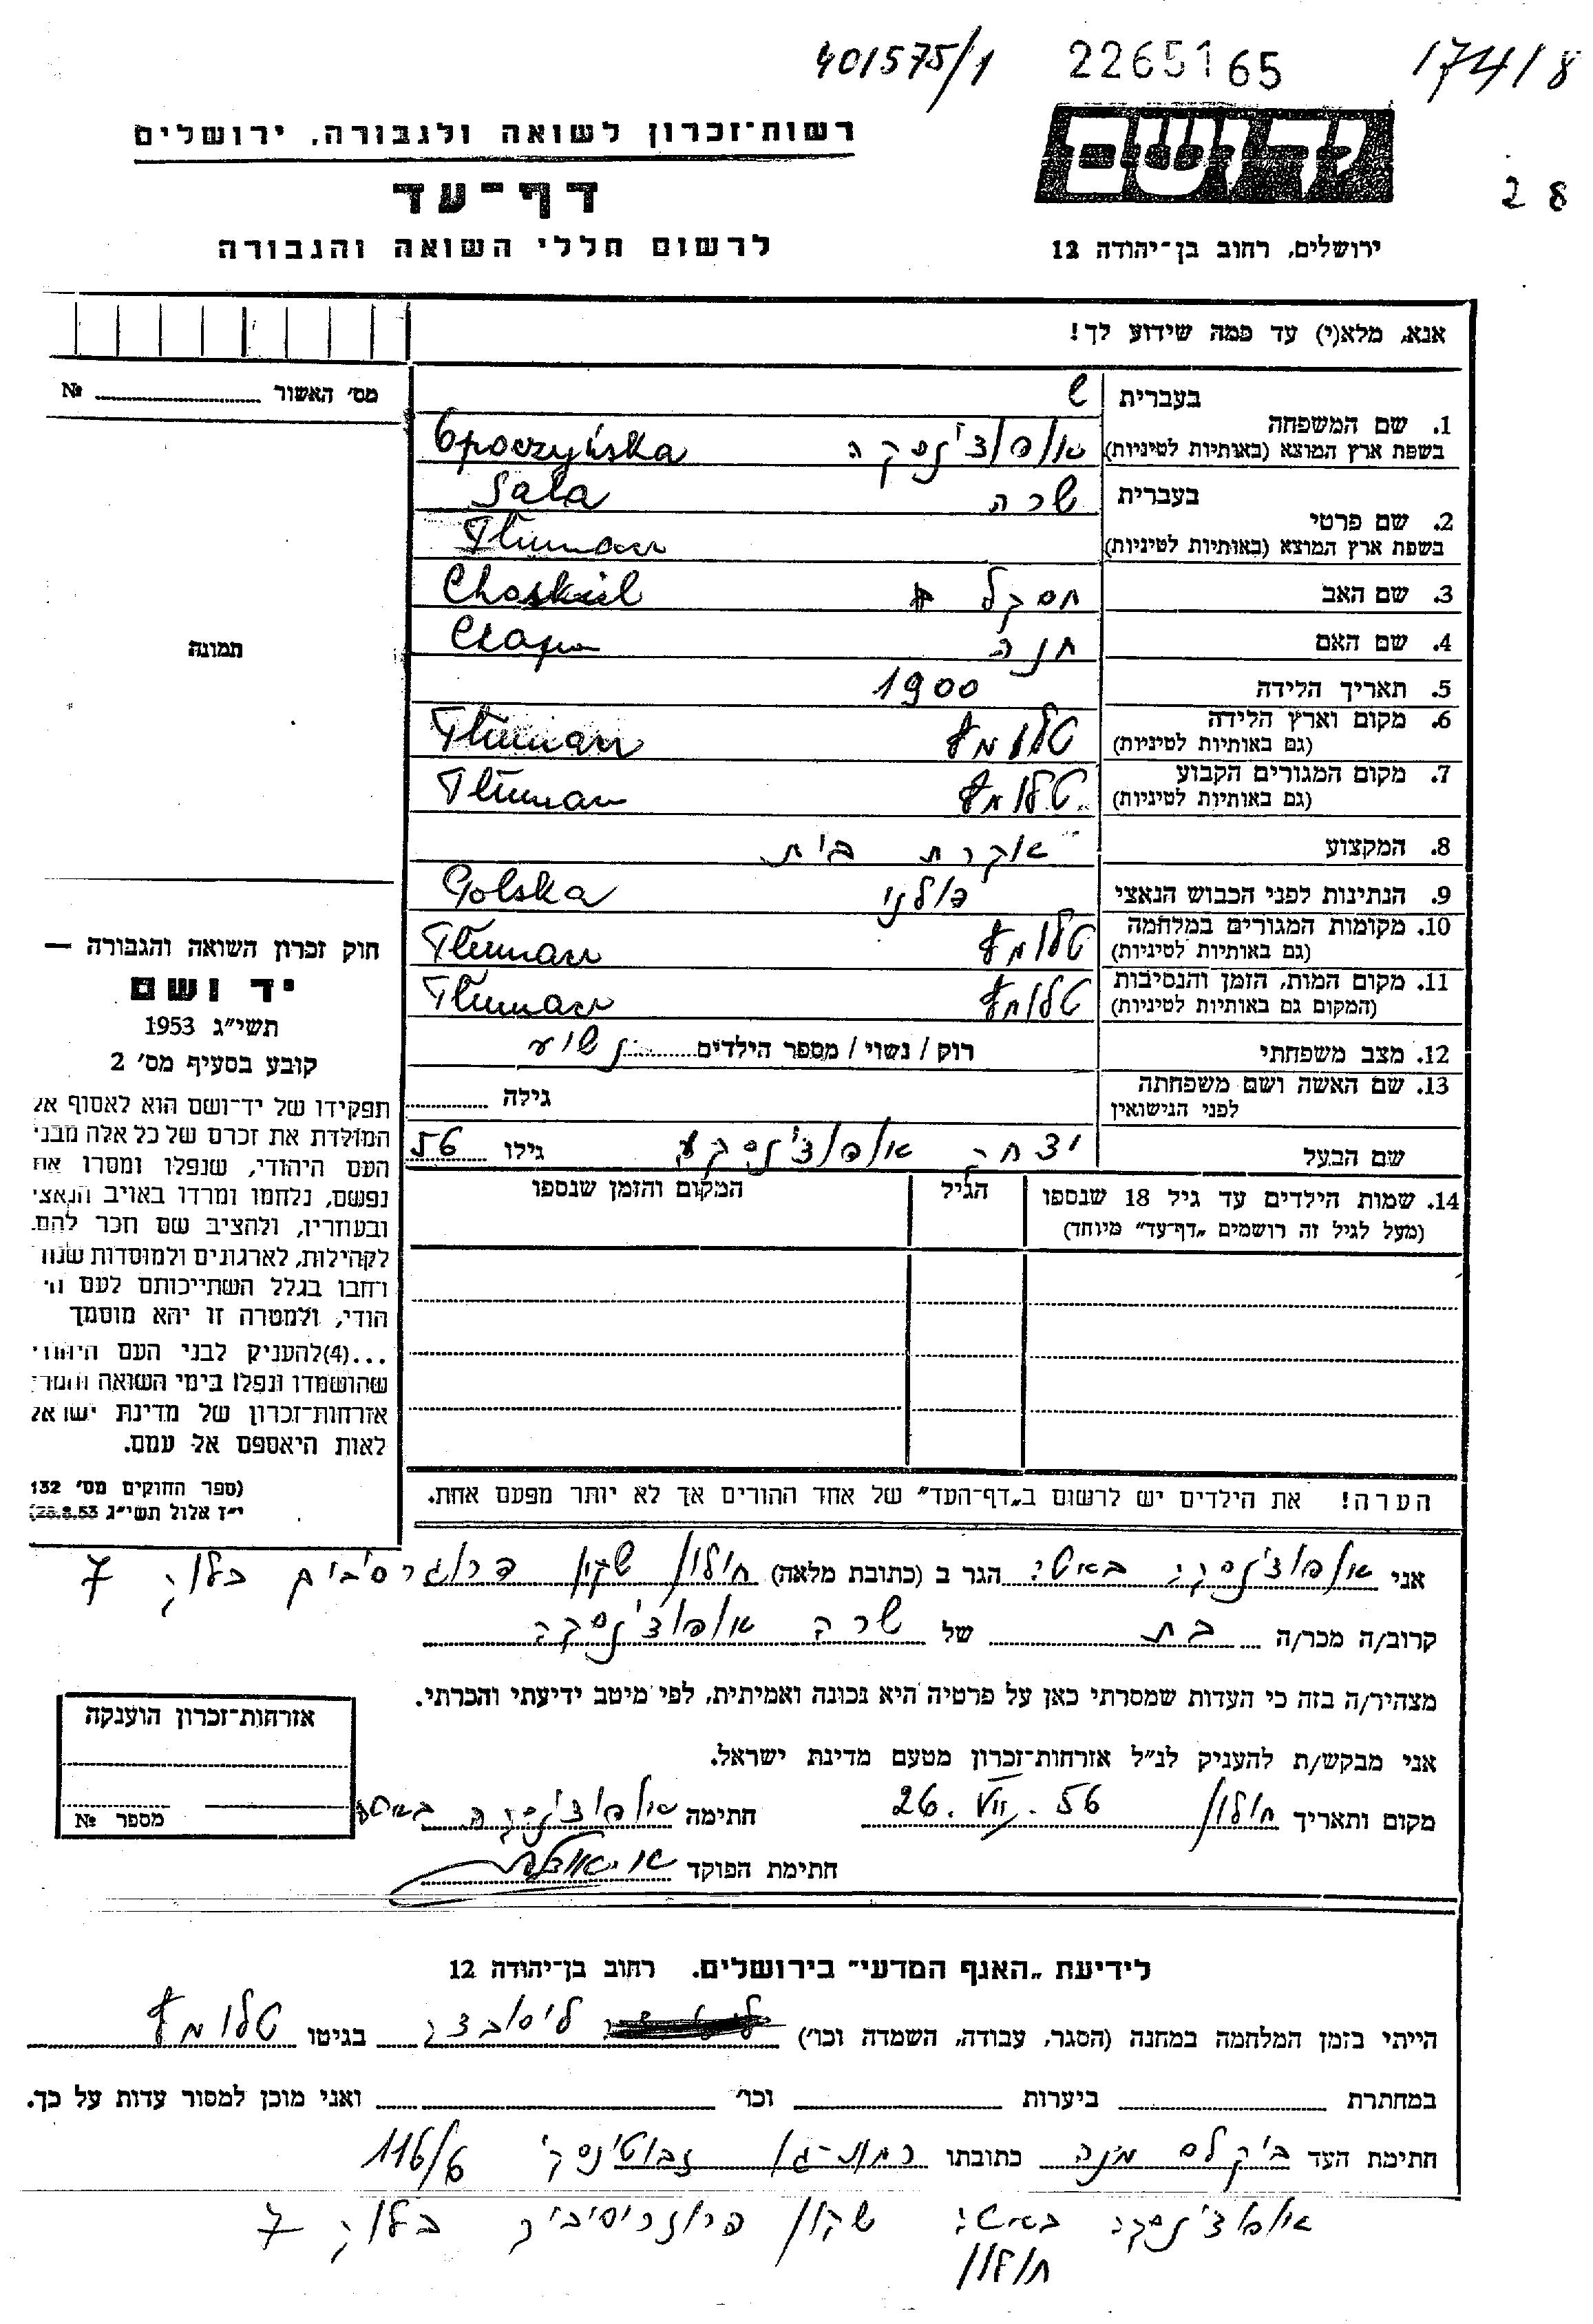 401575/1 2265165 174/8
28
יד ושם
ירושלים, רחוב בן־יהודה 12
רשות־זכרון לשואה ולגבורה, ירושלים
דף־עד
לרשום חללי השואה והגבורה
אנא, מלא(י) עד כמה שידוע לך!
מס׳ האשור ........ №
תמונה
בעברית ש
1. שם המשפחה
בשפת ארץ המוצא (באותיות לטיניות) אופוצ'נסקה Opoczyńska
בעברית שרה Sala
2. שם פרטי
בשפת ארץ המוצא (באותיות לטיניות) Tłumacz
3. שם האב חסקל Chaskiel
4. שם האם חנה
5. תאריך הלידה 1900
6. מקום וארץ הלידה
(גם באותיות לטיניות) טלומץ Tłumacz
7. מקום המגורים הקבוע
(גם באותיות לטיניות) טלומץ Tłumacz
8. המקצוע עקרת בית
9. הנתינות לפני הכבוש הנאצי פולני Polska
10. מקומות המגורים במלחמה
(גם באותיות לטיניות) טלומץ Tłumacz
11. מקום המות, הזמן והנסיבות
(המקום גם באותיות לטיניות) טלומץ Tłumacz
12. מצב משפחתי רוק / נשוי / מספר הילדים ........
13. שם האשה ושם משפחתה
לפני הנישואין גילה ........
שם הבעל יצחק גילו 56
14. שמות הילדים עד גיל 18 שנספו הגיל המקום והזמן שנספו
(מעל לגיל זה רושמים „דף־עד" מיוחד)
הערה! את הילדים יש לרשום ב„דף־העד" של אחד ההורים אך לא יותר מפעם אחת.
חוק זכרון השואה והגבורה —
יד ושם
תשי״ג 1953
קובע בסעיף מס׳ 2
תפקידו של יד־ושם הוא לאסוף אל
המולדת את זכרם של כל אלה מבני
העם היהודי, שנפלו ומסרו את
נפשם, נלחמו ומרדו באויב הנאצי
ובעוזריו, ולהציב שם וזכר להם,
לקהילות, לארגונים ולמוסדות שנח
רחבו בגלל השתייכותם לעם הי
הודי, ולמטרה זו יהא מוסמך
...(4)להעניק לבני העם היהודי
שהושמדו ונפלו בימי השואה והמרי
אזרחות־זכרון של מדינת ישראל
לאות היאספם אל עמם.
(ספר החוקים מס׳ 132
י״ז אלול תשי״ג 28.8.53)
אני אופוצ'נסקה באשה הגר ב (כתובת מלאה) חולון שכון פרוגרסיבים בלוק 7
קרוב/ה מכר/ה בת של שרה אופוצ'נסקה
מצהיר/ה בזה כי העדות שמסרתי כאן על פרטיה היא נכונה ואמיתית, לפי מיטב ידיעתי והכרתי.
אני מבקש/ת להעניק לנ״ל אזרחות־זכרון מטעם מדינת ישראל.
מקום ותאריך חולון 26. VII. 56 חתימה אופוצ'נסקה באשה
חתימת הפוקד
אזרחות־זכרון הוענקה
מספר №
לידיעת „האגף המדעי" בירושלים. רחוב בן־יהודה 12
הייתי בזמן המלחמה במחנה (הסגר, עבודה, השמדה וכו׳) בגיטו טלומץ
במחתרת ........ ביערות ........ וכו׳ ........ ואני מוכן למסור עדות על כך.
חתימת העד כתובתו רמת־גן ז'בוטינסקי 116/6
אופוצ'נסקה באשה שכון פרוגרסיבי בלוק 7
חולון